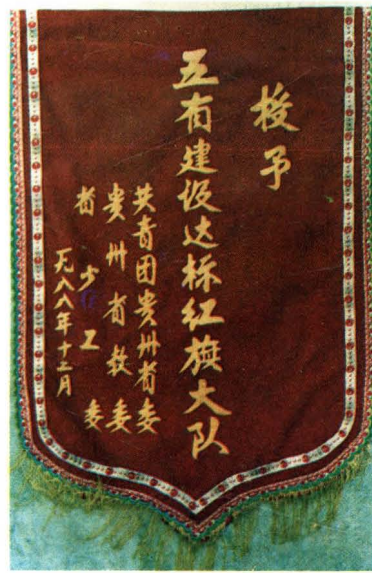 授予
五有建设达标红旗大队
共青团贵州省委
贵州省教委
省少工委
一九八八年十二月